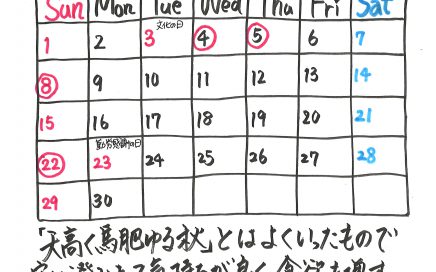 Sun Mon Tue Wed Thu Fri Sat
文化の日
1 2 3 4 5 6 7
8 9 10 11 12 13 14
15 16 17 18 19 20 21
勤労感謝の日
22 23 24 25 26 27 28
29 30
「天高く馬肥ゆる秋」とはよくいったもので